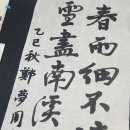 春雨細不
雪盡南溪
乙巳秋鄭夢周